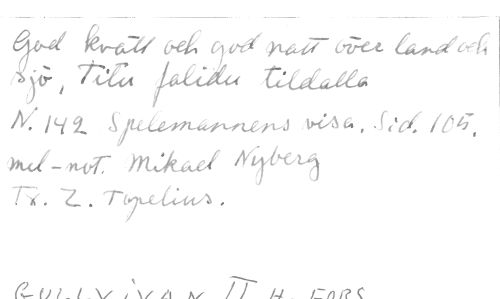 God kväll och god natt över land och
sjö, Titu falidu tildalla
N. 142 Spelemannens visa. Sid. 105.
mel-not. Mikael Nyberg
Tx. Z. Topelius.
II H. FORS